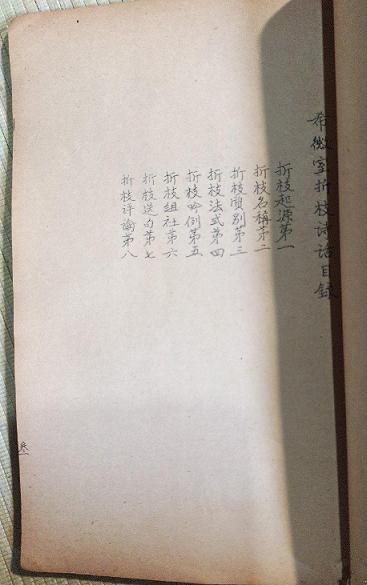 希微室折枝诗话目錄
折枝起源第一
折枝名稱第二
折枝質別第三
折枝法式第四
折枝吟例第五
折枝組社第六
折枝选句第七
折枝评論第八